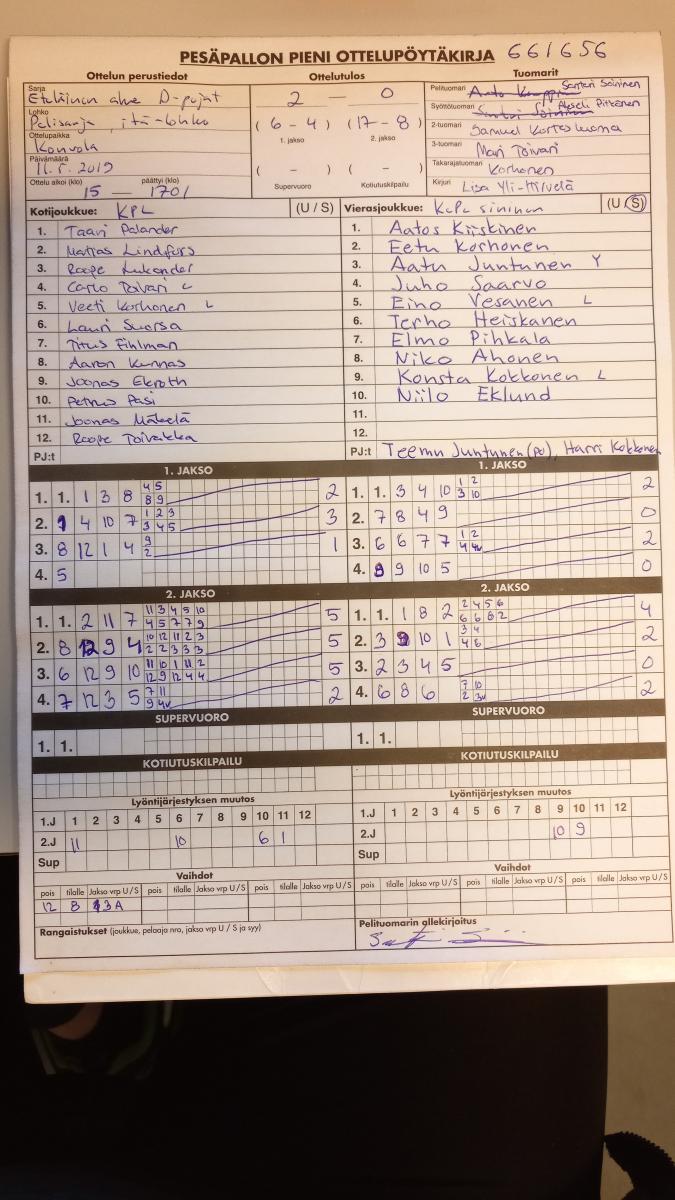 PESÄPALLON PIENI OTTELUPÖYTÄKIRJA 661656
Ottelun perustiedot
Ottelutulos
Tuomarit
Sarja
Eteläinen alue D-pojat
Lohko
Pelisarja, itä-lohko
Ottelupaikka
Kouvola
Päivämäärä
11.5. 2019
Ottelu alkoi (klo) päättyi (klo)
15 — 1701
2 — 0
(6 - 4) (17 - 8)
1. jakso 2. jakso
( - ) ( - )
Supervuoro Kotiutuskilpailu
Pelituomari Santeri Soininen
Syöttötuomari Pitkänen
2-tuomari Samuel Korteslluoma
3-tuomari Mari Toivari
Takarajatuomari Korhonen
Kirjuri Lisa Yli-Hirvelä
Kotijoukkue: KPL (U / S)
1. Taavi Palander
2. Matias Lindfors
3. Roope Lukander
4. Carlo Toivari L
5. Veeti Korhonen L
6. Lauri Suorsa
7. Titus Eihlman
8. Aaron Kunnas
9. Joonas Ekroth
10. Petrus Pasi
11. Joonas Mäkelä
12. Roope Toivakka
PJ:t
Vierasjoukkue: KePL sininen (U / S)
1. Aatos Kiiskinen
2. Eetu Korhonen
3. Aatu Juntunen Y
4. Juho Saarvo
5. Eino Vesanen L
6. Terho Heiskanen
7. Elmo Pihkala
8. Niko Ahonen
9. Konsta Kokkonen L
10. Niilo Eklund
11.
12.
PJ:t Teemu Juntunen (pj), Harri Kokkonen
1. JAKSO
1. 1. 1 3 8 4 5 8 9 2
2. 1 4 10 7 1 2 3 3 4 5 3
3. 8 12 1 4 9 2 1
4. 5
1. JAKSO
1. 1. 3 4 10 1 2 3 10 2
2. 7 8 4 9 0
3. 6 6 7 7 1 2 4 4v 2
4. 8 9 10 5 0
2. JAKSO
1. 1. 2 11 7 11 3 4 5 10 4 5 7 7 9 5
2. 8 12 9 4 10 12 11 2 3 2 2 3 3 3 5
3. 6 12 9 10 11 10 1 11 2 12 9 12 4 4 5
4. 7 12 3 5 7 11 9 4v 2
2. JAKSO
1. 1. 1 8 2 2 4 5 6 6 6 8 2 4
2. 3 9 10 1 3 4 4 6 2
3. 2 3 4 5 0
4. 6 8 6 7 10 2 3v 2
SUPERVUORO
1. 1.
SUPERVUORO
1. 1.
KOTIUTUSKILPAILU
KOTIUTUSKILPAILU
Lyöntijärjestyksen muutos
1.J 1 2 3 4 5 6 7 8 9 10 11 12
2.J 11 10 6 1
Sup
Lyöntijärjestyksen muutos
1.J 1 2 3 4 5 6 7 8 9 10 11 12
2.J 10 9
Sup
Vaihdot
pois tilalle Jakso vrp U/S pois tilalle Jakso vrp U/S
12 8 3A
Vaihdot
pois tilalle Jakso vrp U/S pois tilalle Jakso vrp U/S
Rangaistukset (joukkue, pelaaja nro, jakso vrp U / S ja syy)
Pelituomarin allekirjoitus